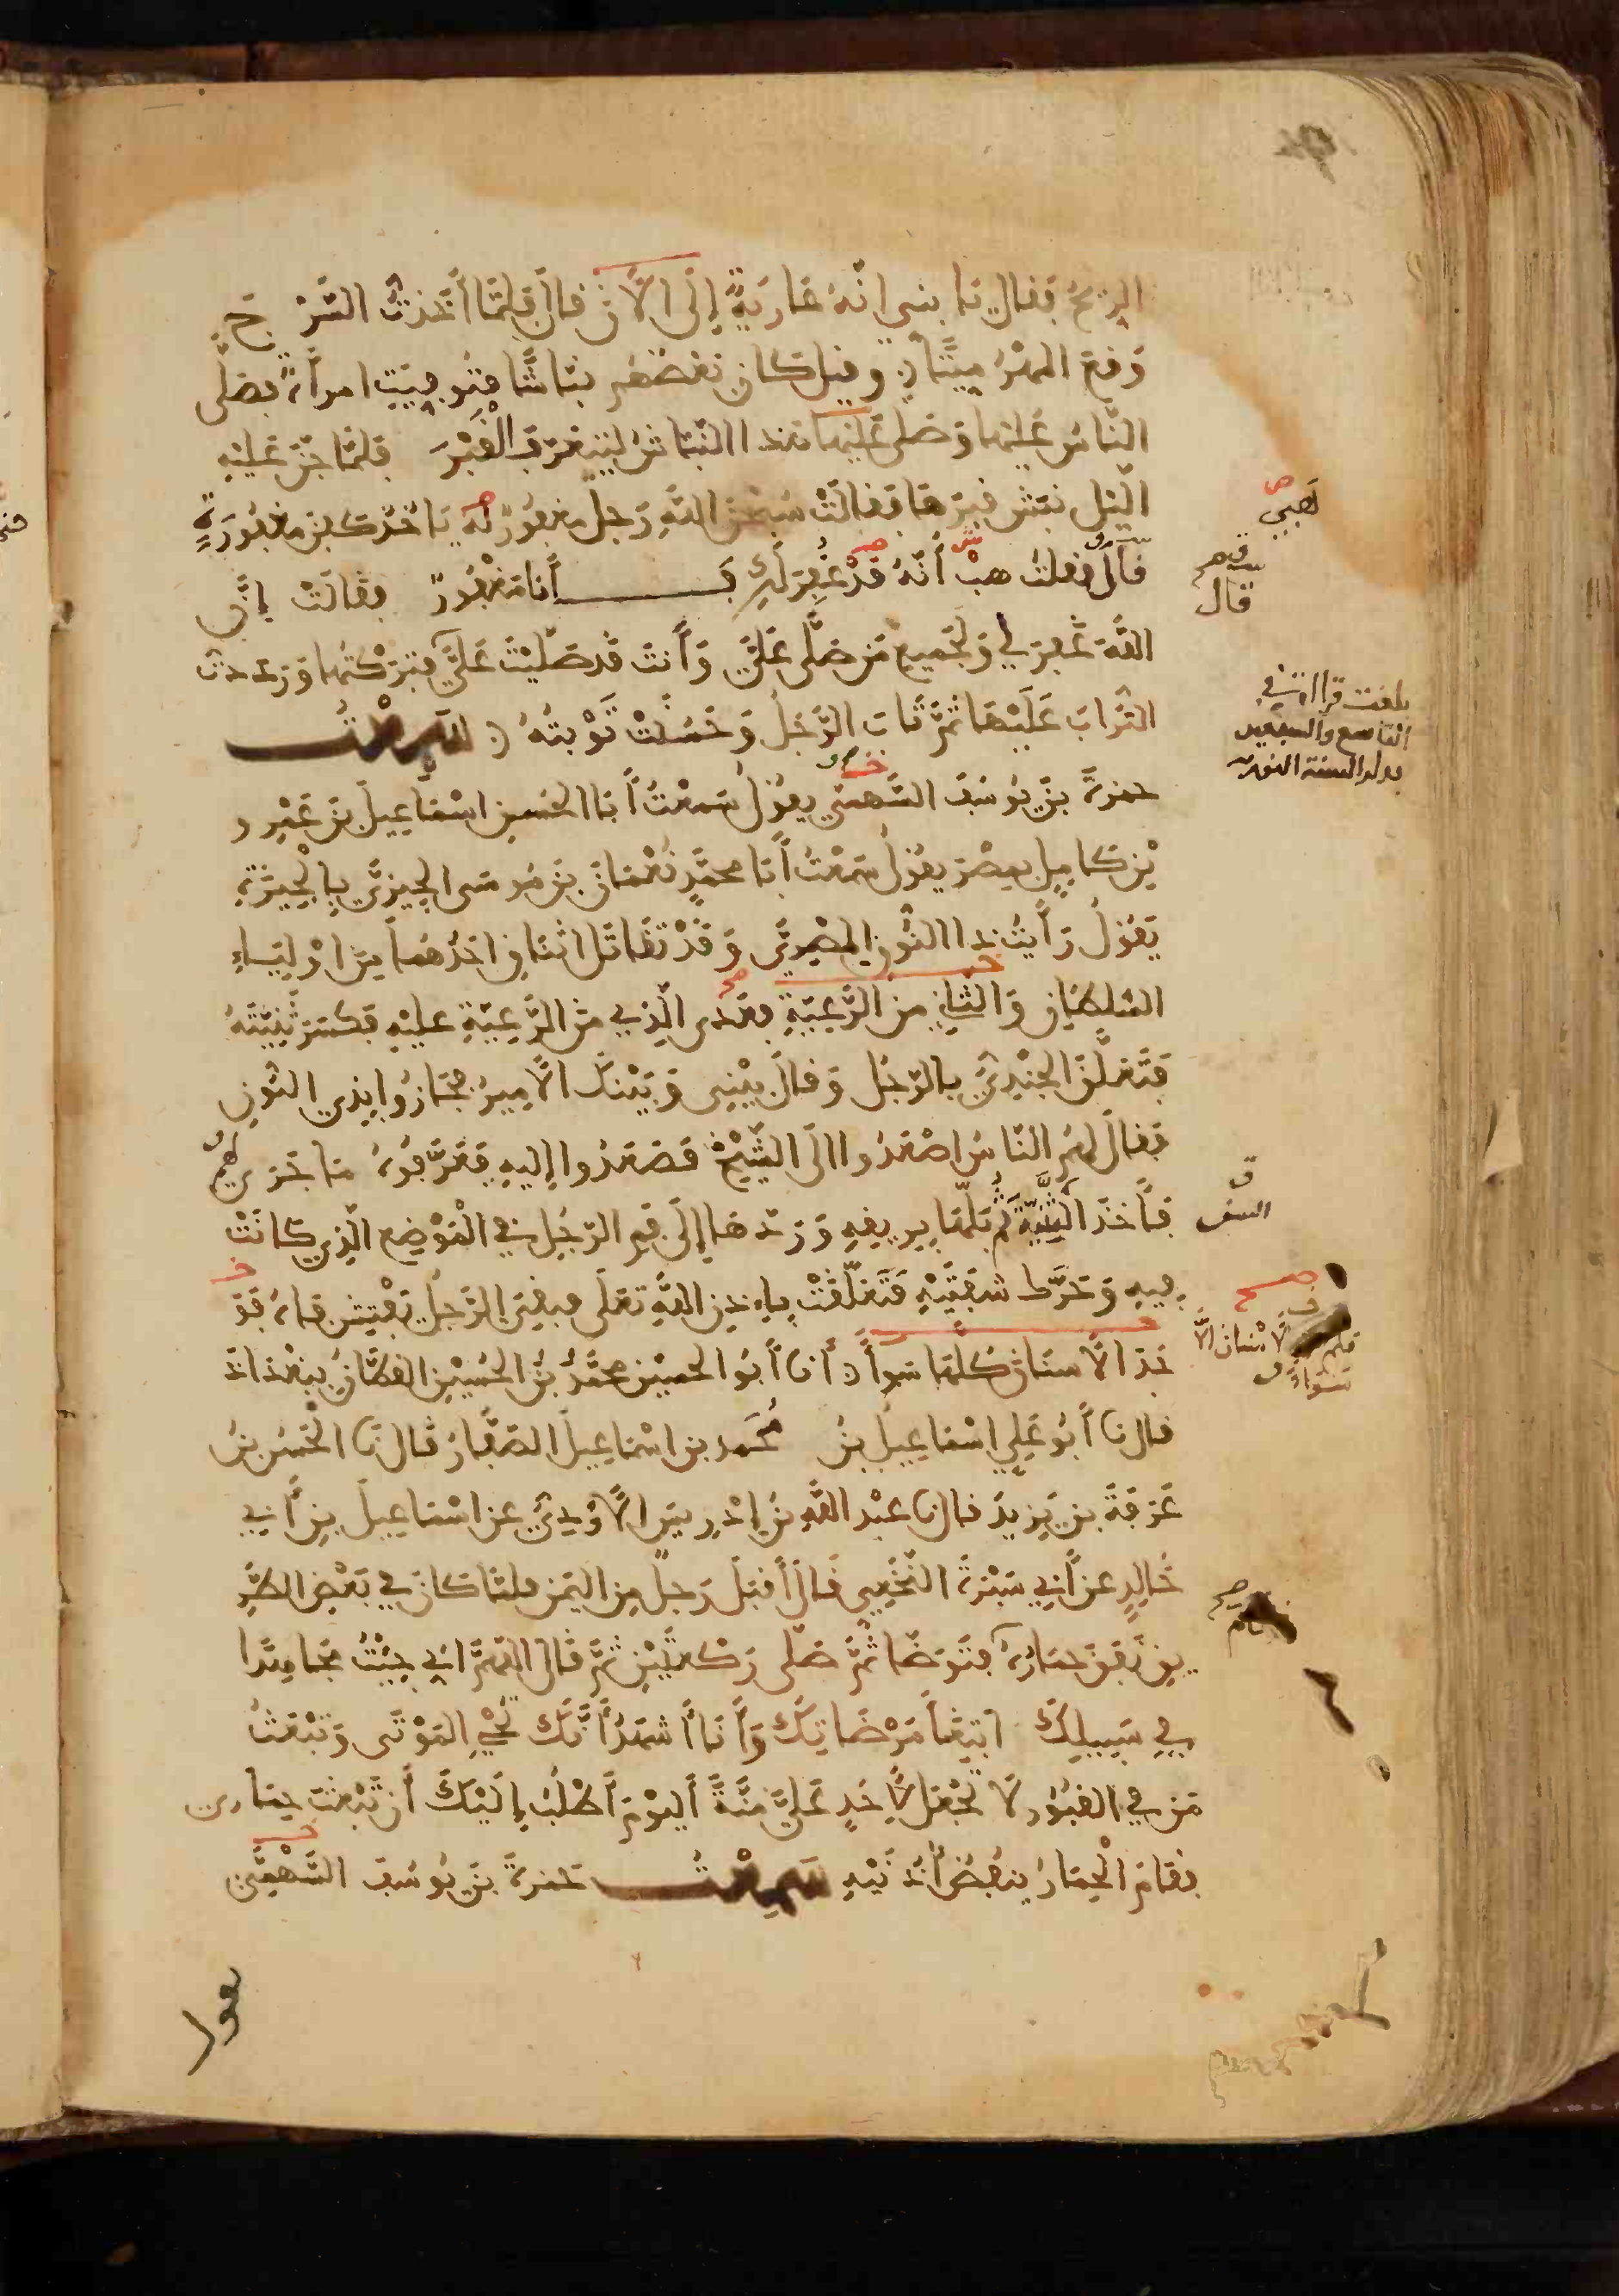 الريح فقال يا بني انه عارية إلى الآن قال فلما أخذت السرج
وقع المهر ميتا وقيل كان بعضهم نباشا فتوفيت امرأة فصلى
الناس عليها وصلى عليها هذا النباش ليتعرف القبر فلما جن عليه
الليل نبش قبرها فقالت سبحن الله رجل مغفور له ياخذ كفن مغفورة
قال فقلت هب أنه قد غفر لك فـأنا مغفور فقالت إن
الله غفر لي ولجميع من صلى علي وأنت قد صليت علي فتركتها ورددت
التراب عليها ثم تاب الرجل وحسنت توبته سمعت
حمزة بن يوسف السهمي يقول سمعت أبا الحسن اسماعيل بن عمرو
بن كامل بمصر يقول سمعت أبا محمد نعمان بن موسى الجيزي بالجيزة
يقول رأيت ذا النون المصري وقد تقاتل اثنان احدهما من اولياء
السلطان والثاني من الرعية فعدى الذي من الرعية عليه فكسر ثنيته
فتعلق الجندي بالرجل وقال بيني وبينك الأمير فجازوا بذي النون
فقال لهم الناس اصعدوا الى الشيخ فصعدوا إليه فعرفوه ما جرى لهم
فأخذ الثنية ثم بلها بريقه وردها إلى فم الرجل في الموضع الذي كانت
فيه وحرك شفتيه فتعلقت باذن الله تعلى فبقي الرجل يفتش فاه فو
جد الأسنان كلها سواء أنا أبو الحسين محمد بن الحسين القطان ببغداد
قال نا أبو علي اسماعيل بن محمد بن اسماعيل الصفار قال نا الحسن بن
عرفة بن يزيد قال نا عبد الله بن إدريس الأودي عن اسماعيل بن أبي
خالد عن أبي سبرة النخعي قال أقبل رجل من اليمن فلما كان في بعض الطر
يق نفق حماره فتوضا ثم صلى ركعتين ثم قال اللهم اني جئت مجاهدا
في سبيلك ابتغا مرضاتك وأنا أشهد أنك تحي الموتى وتبعث
من في القبور لا تجعل لأحد علي منة أليوم أطلب إليك أن تبعث حماري
فقام الحمار ينفض أذنيه سمعت حمزة بن يوسف السهمي
لهبي
قال
بلغت قراءة في
التاسع والسبعين
السن
الأسنان
سواء
يقول